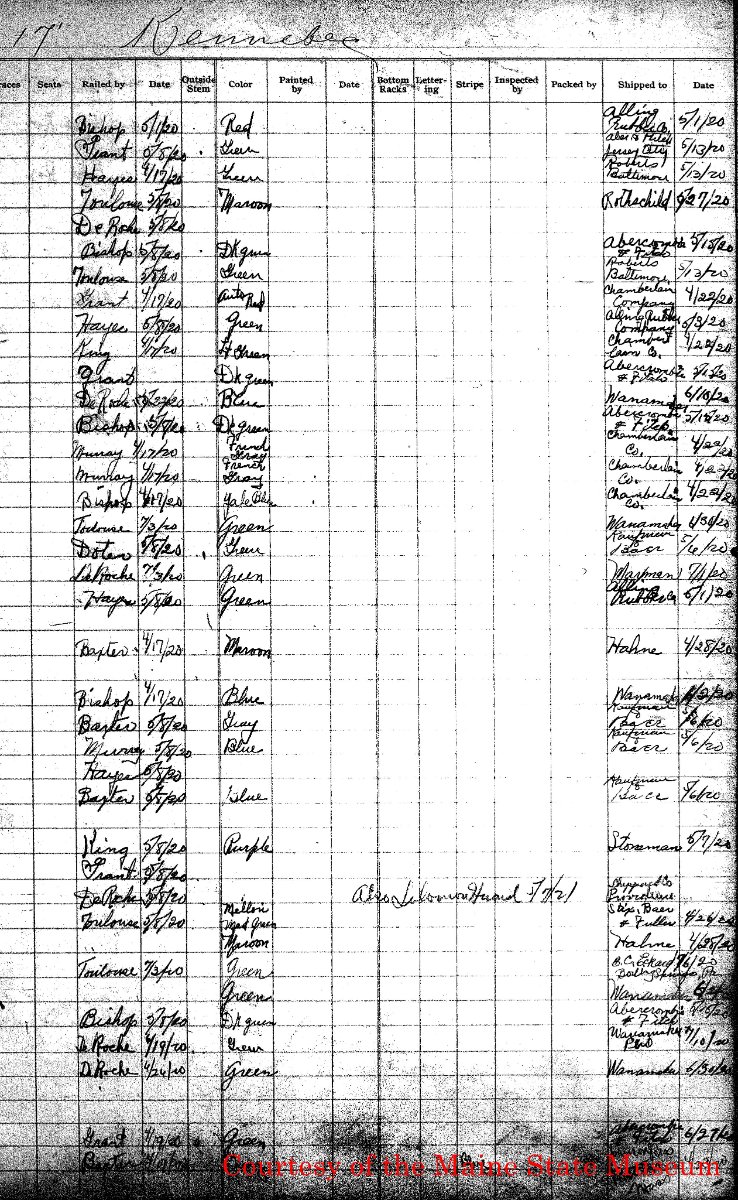 17' Kennebec
Seats Railed by Date Outside Stem Color Painted by Date Bottom Racks Lettering Stripe Inspected by Packed by Shipped to Date
Bishop 5/1/20 Red Alling Rubber Co. 5/1/20
Grant 5/8/20 Green Jersey City 5/13/20
Hayes 4/17/20 Green Roberts Baltimore 5/13/20
Toulouse 5/8/20 Maroon Rothschild 27/20
De Roche 5/8/20
Bishop 5/8/20 Dk green Abercrombie & Fitch 5/15/20
Toulouse 5/8/20 Green Roberts Baltimore 5/13/20
Grant 4/17/20 Auto Red Chamberlain Company 4/22/20
Hayes 5/8/20 Green Alling Rubber Company 5/3/20
King 4/17/20 Lt Green Chamberlain Co. 4/22/20
Grant Dk green Abercrombie & Fitch
De Roche Blue Wanamaker 6/10/20
Bishop 5/8/20 Dk green Abercrombie & Fitch 5/15/20
Murray 4/17/20 French Gray Chamberlain Co. 4/22/20
Murray 4/17/20 French Gray Chamberlain Co. 4/22/20
Bishop 4/17/20 Yale Blue Chamberlain Co. 4/22/20
Toulouse 7/3/20 Green Wanamaker 6/30/20
Doten 5/8/20 Green Kaufman & Baer 5/6/20
De Roche 7/3/20 Green 7/1/20
Hayes 5/8/20 Green Alling Rubber Co 5/1/20
Baxter 4/17/20 Maroon Hahne 4/28/20
Bishop 4/17/20 Blue Wanamaker
Baxter 5/8/20 Gray Kaufman & Baer 5/6/20
Murray 5/8/20 Blue Kaufman & Baer 5/6/20
Hayes 5/8/20
Baxter 5/8/20 Blue Kaufman & Baer 5/6/20
King 5/8/20 Purple Stoneman 5/7/20
Grant 5/8/20
De Roche 5/8/20 Also Solomon 5/7/21 Shepard Co Providence
Toulouse 5/8/20 Mellon Med Green Stix, Baer & Fuller 4/26/20
Maroon Hahne 4/28/20
Toulouse 7/3/20 Green B.C. Eckard Boiling Springs, Pa 7/6/20
Green Wanamaker
Bishop 5/8/20 Dk green Abercrombie & Fitch
De Roche 4/19/20 Green Wanamaker Phil 7/10/20
De Roche 4/26/20 Green Wanamaker 6/30/20
Grant Green Abercrombie & Fitch 6/27/20
Baxter
Courtesy of the Maine State Museum